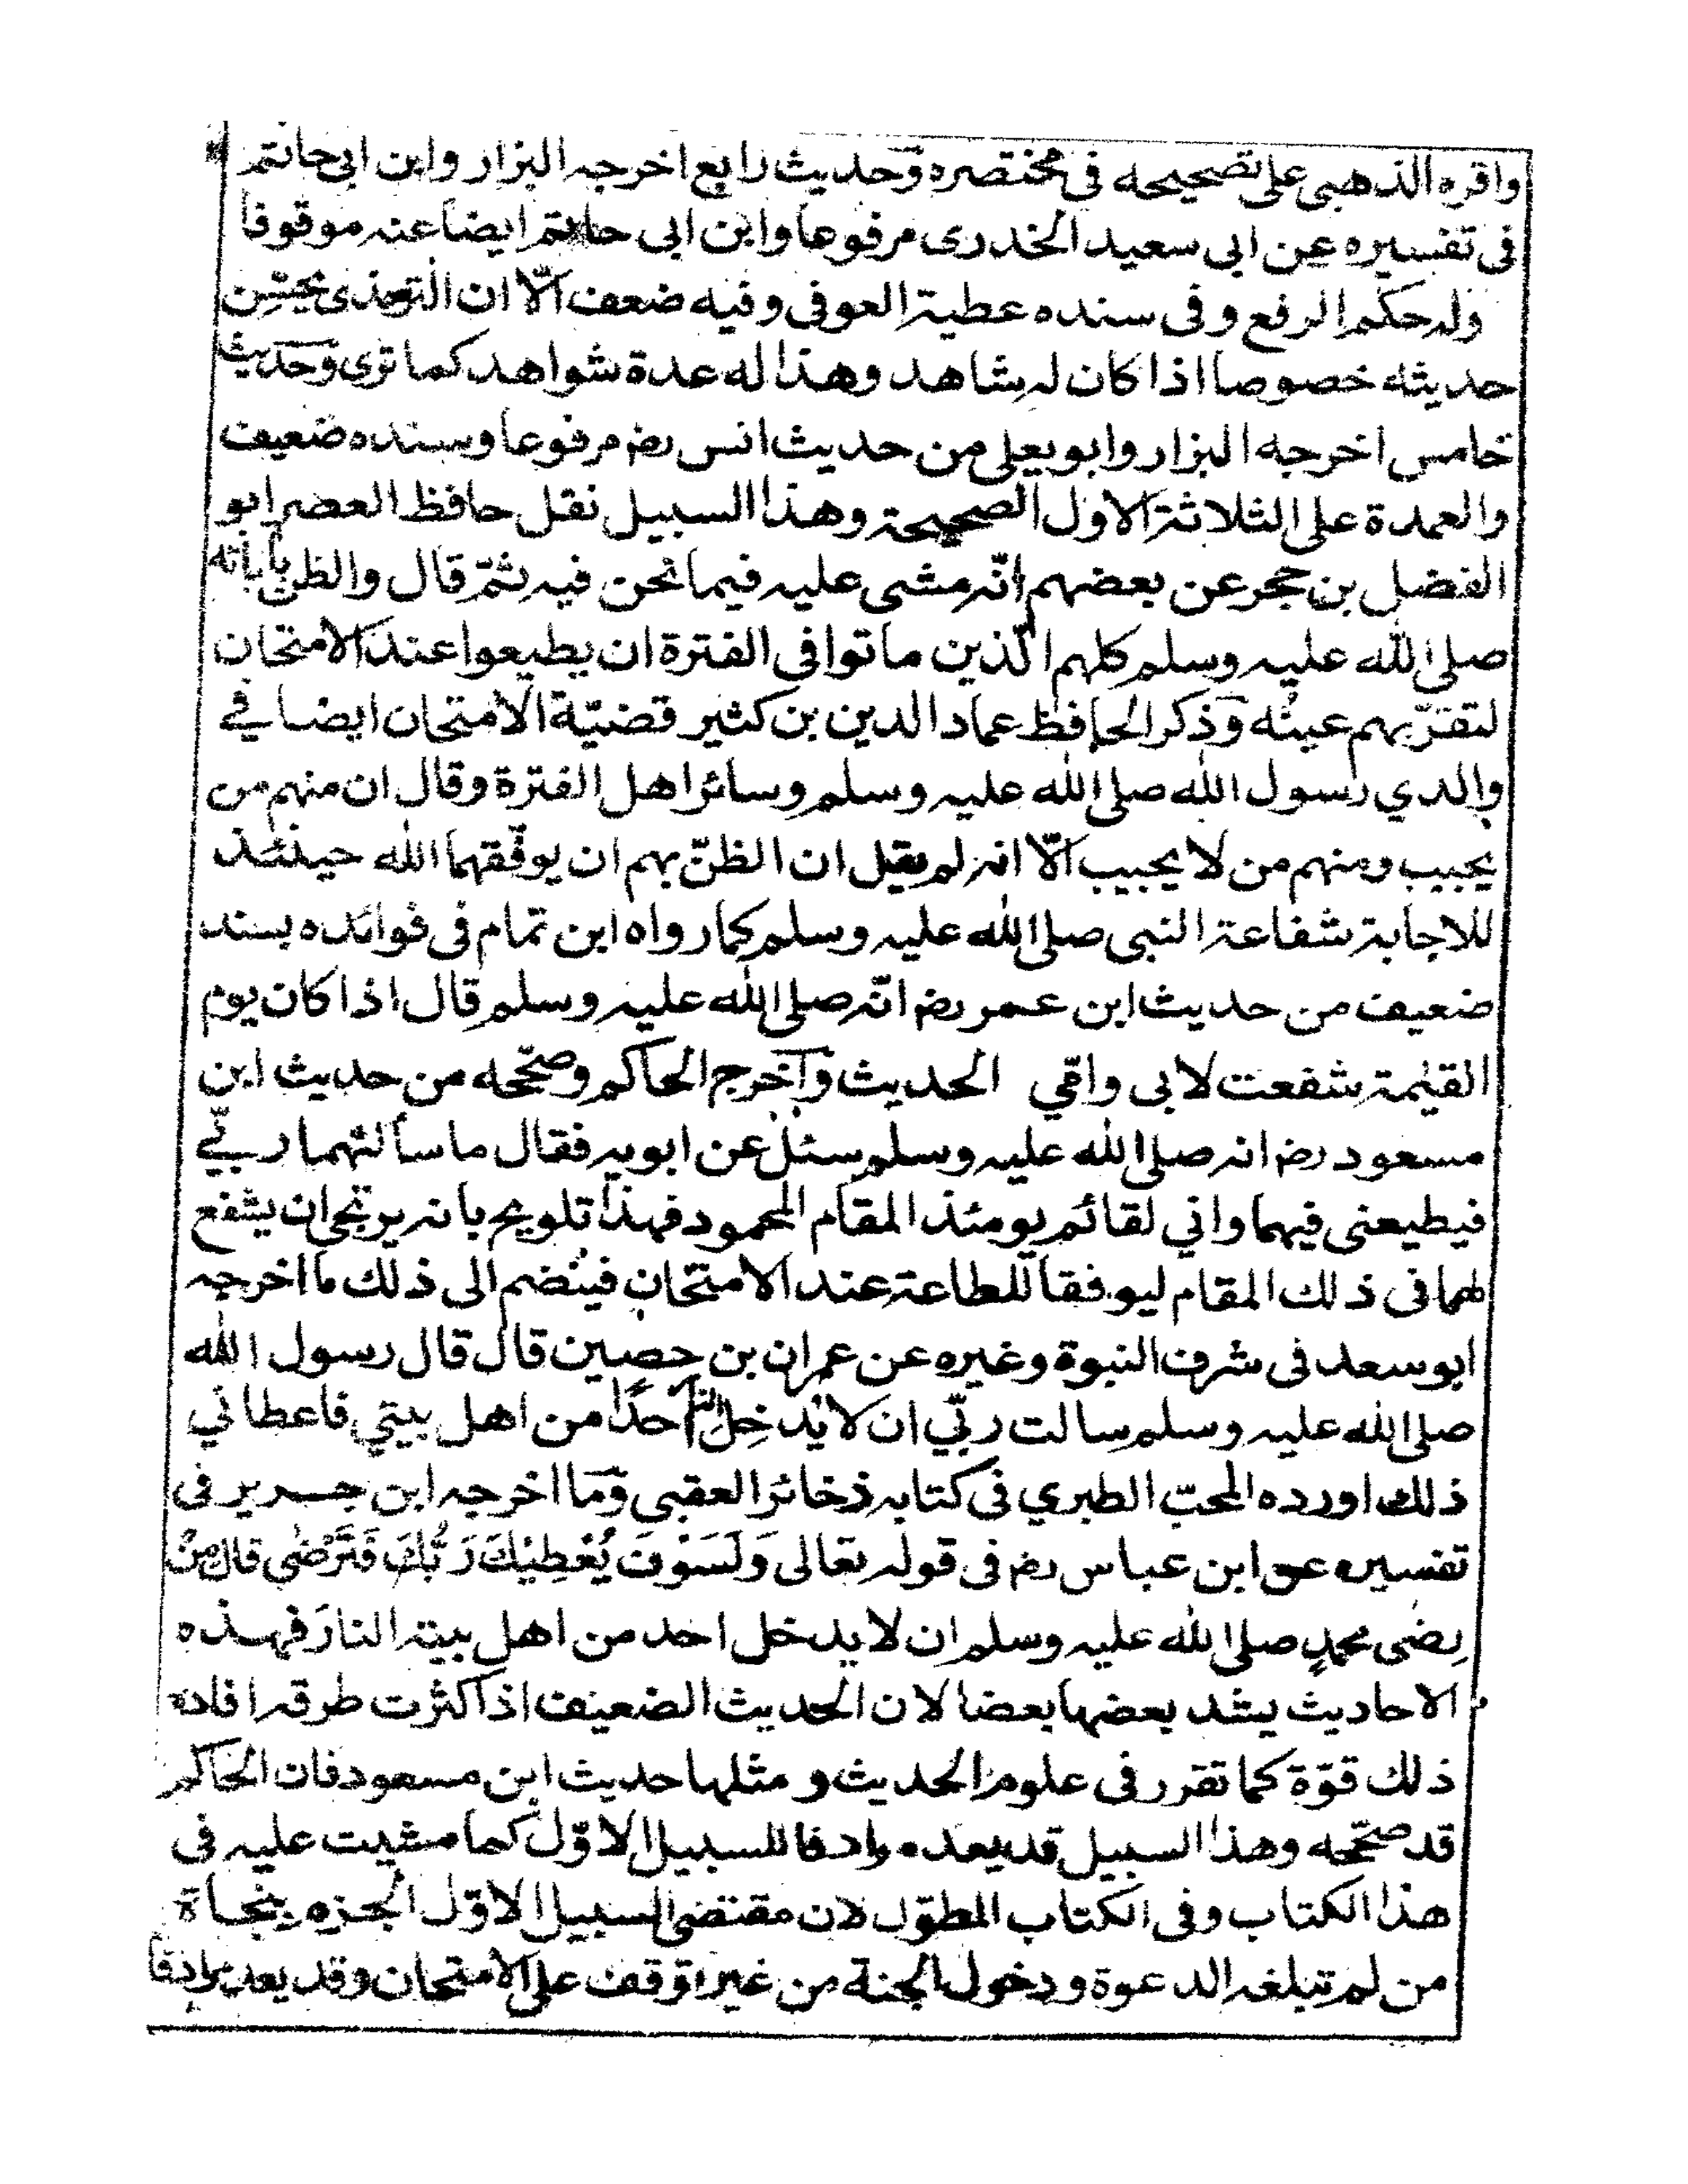 واقره الذهبى على تصحيحه فى مختصره وحديث رابع اخرجه البزار وابن ابى حاتم
فى تفسيره عن ابى سعيد الخدرى مرفوعا وابن ابى حاتم ايضا عنه موقوفا
وله حكم الرفع وفى سنده عطية العوفى وفيه ضعف الّا ان الترمذى يحسّن
حديثه خصوصا اذا كان له شاهد وهذا له عدة شواهد كما ترى وحديث
خامس اخرجه البزار وابو يعلى من حديث انس رضـ مرفوعا وسنده ضعيف
والعمدة على الثلاثة الاول الصحيحة وهذا السبيل نقل حافظ العصر ابو
الفضل بن حجر عن بعضهم انّه مشى عليه فيما نحن فيه ثمّ قال والظن بآبائه
صلى الله عليه وسلم كلهم الّذين ماتوا فى الفترة ان يطيعوا عند الامتحان
لتقرّ بهم عينُه وذكر الحافظ عماد الدين بن كثير قضيّة الامتحان ايضا في
والدي رسول الله صلى الله عليه وسلم وسائر اهل الفترة وقال ان منهم من
يجيب ومنهم من لا يجيب الّا انه لم يقل ان الظنّ بهم ان يوفّقهما الله حينئذ
للاجابة شفاعة النبى صلى الله عليه وسلم كما رواه ابن تمام فى فوائده بسند
ضعيف من حديث ابن عمر رضـ انّه صلى الله عليه وسلم قال اذا كان يوم
القيٰمة شفعت لابى وامّي الحديث واخرج الحاكم وصحّحه من حديث ابن
مسعود رضـ انه صلى الله عليه وسلم سئل عن ابويه فقال ما سألتهما ربّي
فيطيعنى فيهما واني لقائم يومئذ المقام المحمود فهذا تلويح بانه يرتجى ان يشفع
لهما فى ذلك المقام ليوفقا للطاعة عند الامتحان فينُضم الى ذلك ما اخرجه
ابو سعد فى شرف النبوة وغيره عن عمران بن حصين قال قال رسول الله
صلى الله عليه وسلم سالت ربّي ان لا يُدخِل النار احدًا من اهل بيتي فاعطاني
ذلك اورده المحبّ الطبري فى كتابه ذخائر العقبى ومّا اخرجه ابن جرير فى
تفسيره عن ابن عباس رضـ فى قوله تعالى وَلَسَوْفَ يُعْطِيْكَ رَبُّكَ فَتَرْضٰى قال مِنْ
رِضٰى محمدٍ صلى الله عليه وسلم ان لا يدخل احد من اهل بيته النارَ فهذه
الاحاديث يشد بعضها بعضا لان الحديث الضعيف اذا كثرت طرقه افاده
ذلك قوّة كما تقرر فى علوم الحديث ومثلها حديث ابن مسعود فان الحاكم
قد صحّحه وهذا السبيل قد يعد مرادفا للسبيل الاوّل كما مشيت عليه فى
هذا الكتاب وفى الكتاب المطوّل لان مقتضى السبيل الاوّل الجزم بنجاة
من لم تبلغه الدعوة ودخول الجنة من غير توقف على الامتحان وقد يعد مرادفا